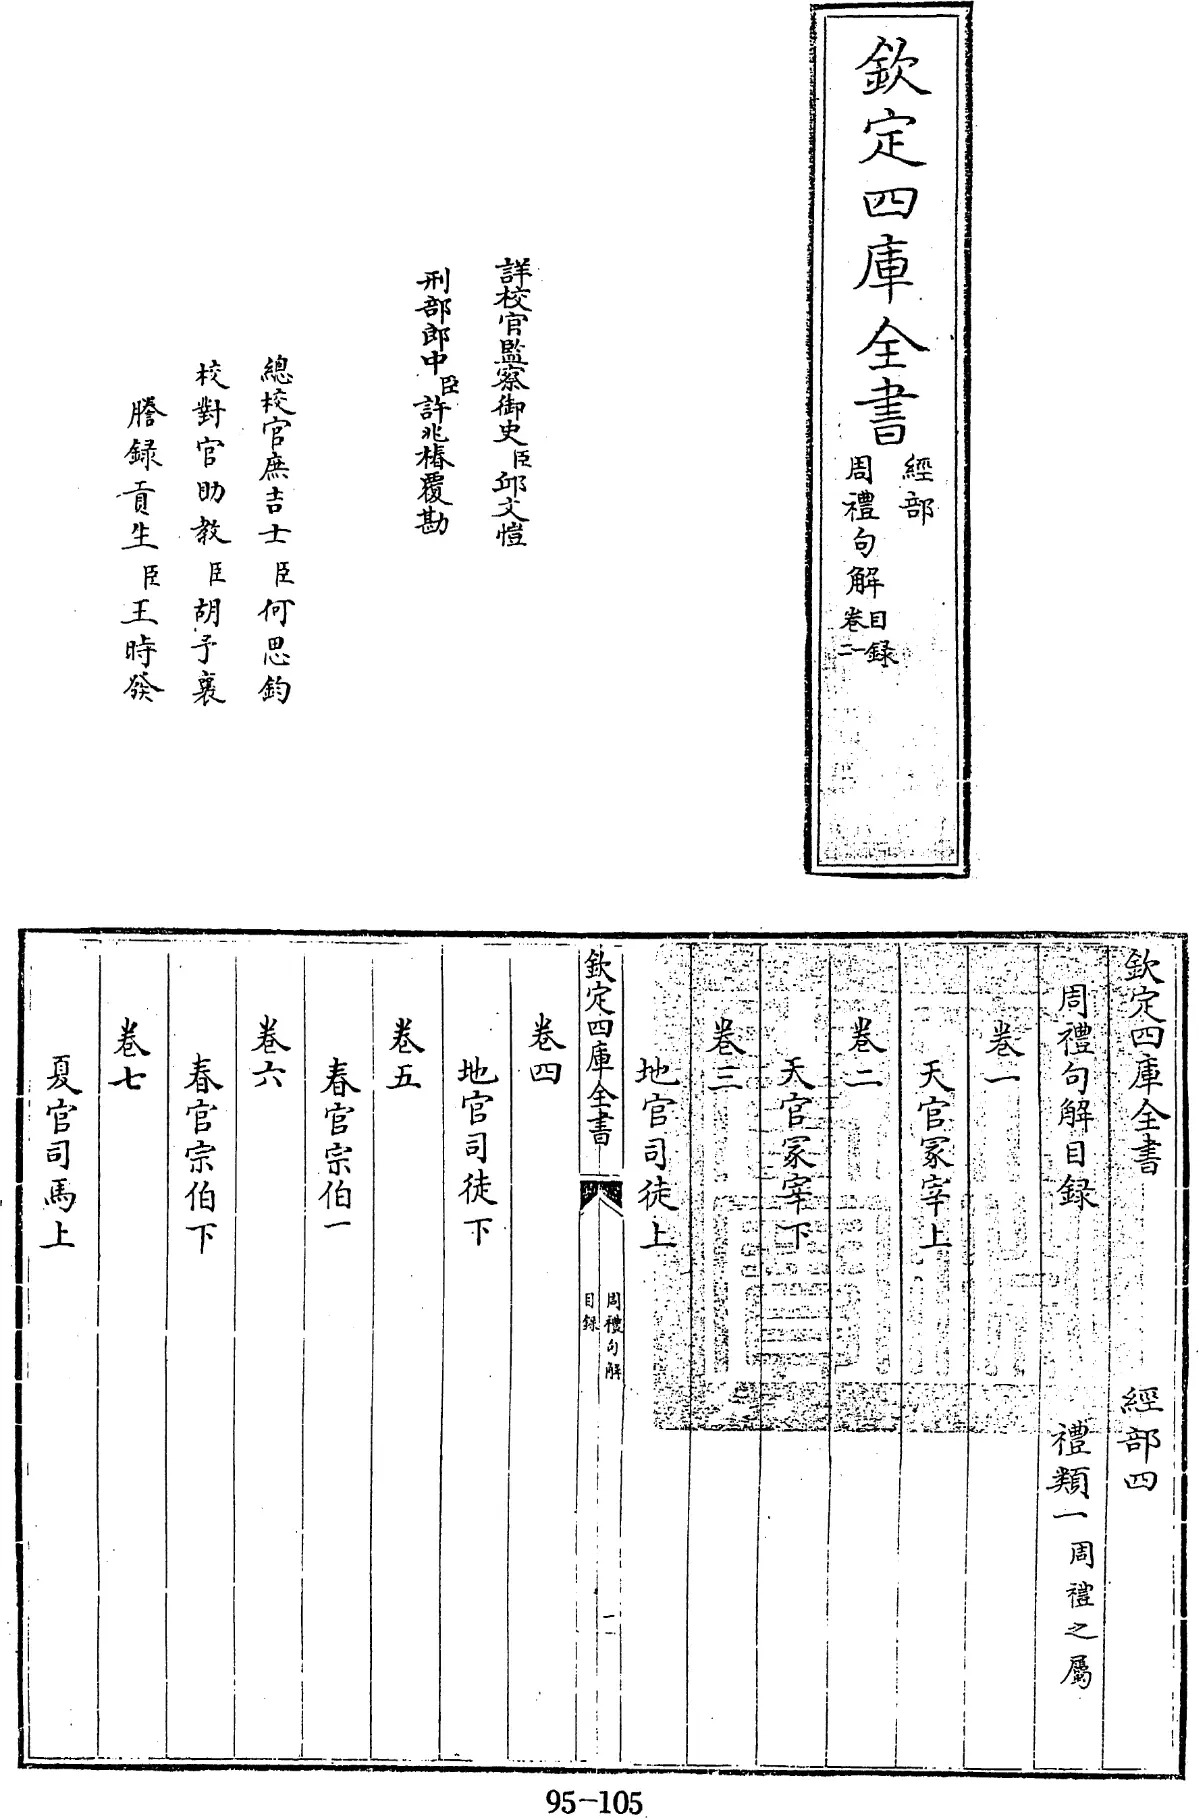 欽定四庫全書
經部
周禮句解
目録
卷一二
詳校官監察御史臣邱文愷
刑部郎中臣許兆椿覆勘
總校官庶吉士臣何思鈞
校對官助教臣胡予襄
謄録貢生臣王時發
欽定四庫全書 經部四
周禮句解目録 禮類一周禮之屬
卷一
天官冢宰上
卷二
天官冢宰下
卷三
地官司徒上
欽定四庫全書
周禮句解
目録
一
卷四
地官司徒下
卷五
春官宗伯一
卷六
春官宗伯下
卷七
夏官司馬上
95-105